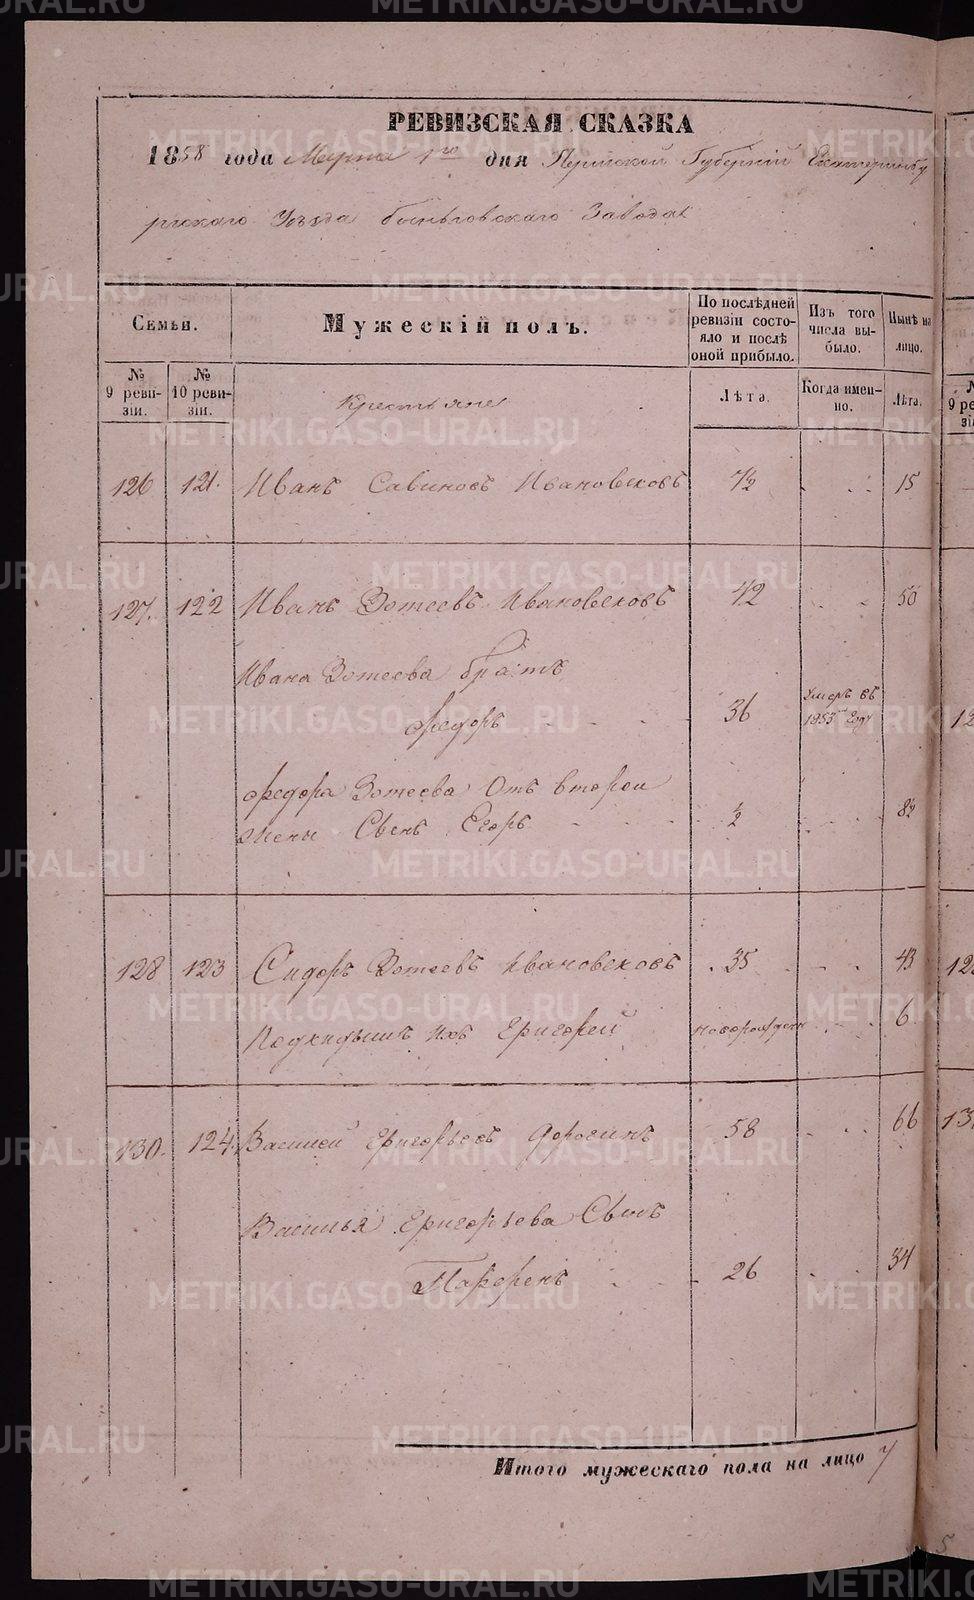 РЕВИЗСКАЯ СКАЗКА
1858 года Марта 1го дня Пермской Губерніи Екатеринбу
ргскаго Уѣзда Быньговскаго Завода
Семьи.
Мужескій полъ.
По послѣдней ревизіи состояло и послѣ оной прибыло.
Изъ того числа выбыло.
Нынѣ на лицо.
№ 9 ревизіи.
№ 10 ревизіи.
Крестьяне
Лѣта.
Когда именно.
Лѣта.
126 121. Иванъ Савиновъ Ивановсковъ 7½ 15
127. 122 Иванъ Зотеевъ Ивановсковъ 42 50
Ивана Зотеева братъ
Федоръ 36 Умеръ въ 1853мъ Году
Федора Зотеева Отъ второи
жены Сынъ Егоръ ½ 8½
128 123 Сидоръ Зотеевъ Ивановсковъ 35 43
Подкидышъ ихъ Григорей новорожден 6
130. 124. Василей Григорьевъ Дорогинъ 58 66
Василья Григорьева Сынъ
Парфенъ 26 34
Итого мужескаго пола на лицо 7
METRIKI.GASO-URAL.RU